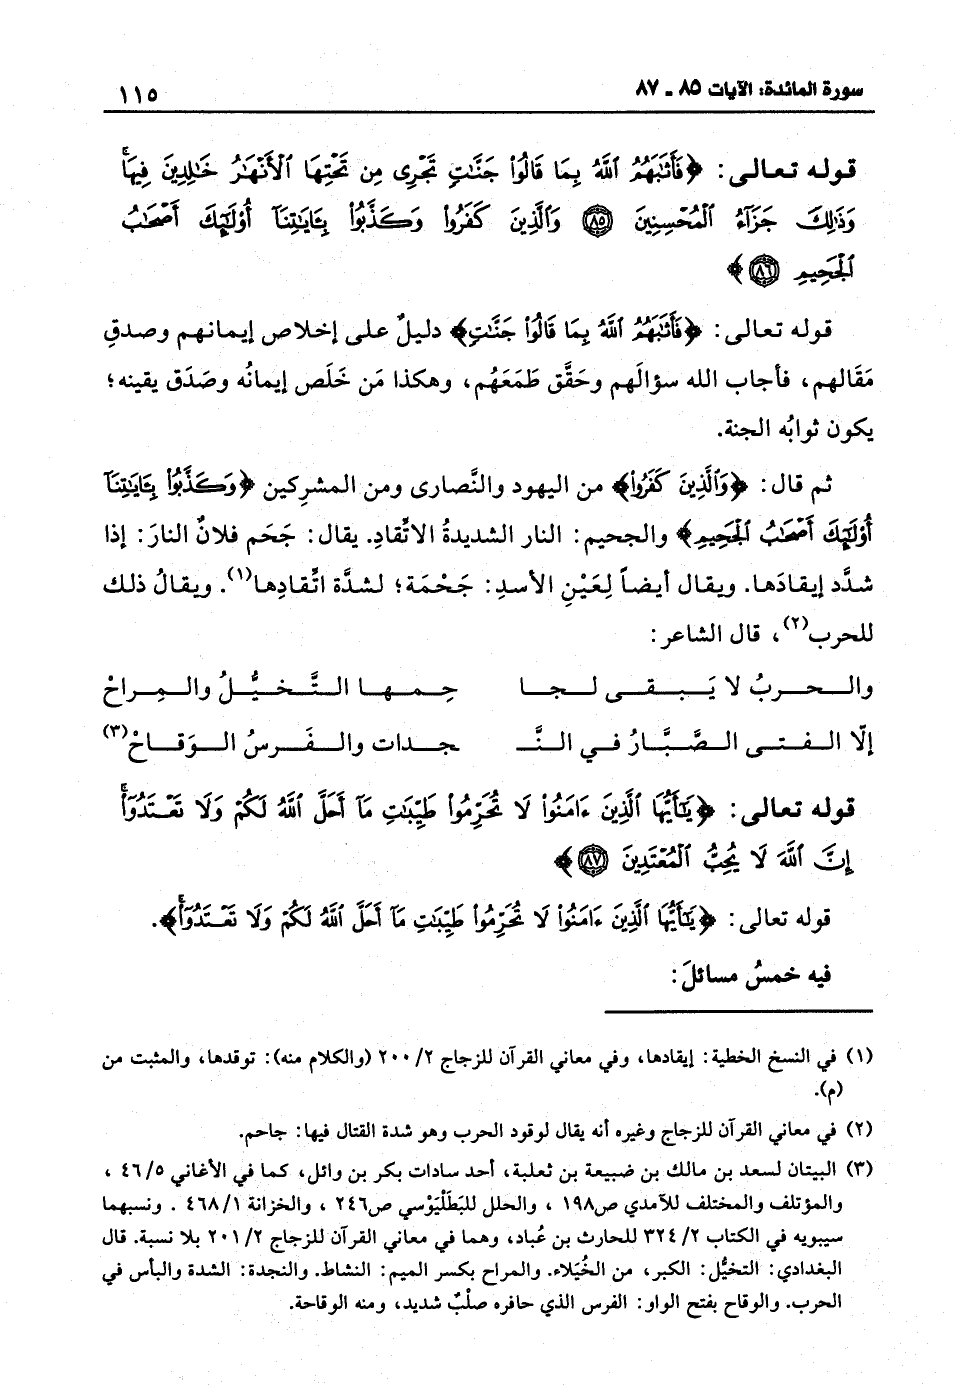 سورة المائدة: الآيات ٨٥ ـ ٨٧ ١١٥
قوله تعالى: ﴿فَأَثَٰبَهُمُ ٱللَّهُ بِمَا قَالُوا۟ جَنَّٰتٍ تَجْرِى مِن تَحْتِهَا ٱلْأَنْهَٰرُ خَٰلِدِينَ فِيهَا ۚ
وَذَٰلِكَ جَزَآءُ ٱلْمُحْسِنِينَ ۝٨٥ وَٱلَّذِينَ كَفَرُوا۟ وَكَذَّبُوا۟ بِـَٔايَٰتِنَآ أُو۟لَٰٓئِكَ أَصْحَٰبُ
ٱلْجَحِيمِ ۝٨٦﴾
قوله تعالى: ﴿فَأَثَٰبَهُمُ ٱللَّهُ بِمَا قَالُوا۟ جَنَّٰتٍ﴾ دليلٌ على إخلاص إيمانهم وصدقِ
مَقَالهم، فأجاب الله سؤالَهم وحَقَّق طَمَعَهُم، وهكذا مَن خَلَص إيمانُه وصَدَق يقينه؛
يكون ثوابُه الجنة.
ثم قال: ﴿وَٱلَّذِينَ كَفَرُوا۟﴾ من اليهود والنَّصارى ومن المشركين ﴿وَكَذَّبُوا۟ بِـَٔايَٰتِنَآ
أُو۟لَٰٓئِكَ أَصْحَٰبُ ٱلْجَحِيمِ﴾ والجحيم: النار الشديدةُ الاتِّقادِ. يقال: جَحَم فلانٌ النارَ: إذا
شدَّد إيقادَها. ويقال أيضاً لِعَيْنِ الأسدِ: جَحْمَة؛ لشدَّة اتِّقادِها(١). ويقالُ ذلك
للحرب(٢)، قال الشاعر:
والـحـربُ لا يَـبـقـى لـجـا حِـمـهـا الـتَّـخـيُّـلُ والـمِـراحْ
إلّا الـفـتـى الـصَّـبَّـارُ فـي الـنَّـ ـجـدات والـفَـرسُ الـوَقـاحْ(٣)
قوله تعالى: ﴿يَٰٓأَيُّهَا ٱلَّذِينَ ءَامَنُوا۟ لَا تُحَرِّمُوا۟ طَيِّبَٰتِ مَآ أَحَلَّ ٱللَّهُ لَكُمْ وَلَا تَعْتَدُوٓا۟ ۚ
إِنَّ ٱللَّهَ لَا يُحِبُّ ٱلْمُعْتَدِينَ ۝٨٧﴾
قوله تعالى: ﴿يَٰٓأَيُّهَا ٱلَّذِينَ ءَامَنُوا۟ لَا تُحَرِّمُوا۟ طَيِّبَٰتِ مَآ أَحَلَّ ٱللَّهُ لَكُمْ وَلَا تَعْتَدُوٓا۟ ۚ﴾.
فيه خمسُ مسائلَ:
(١) في النسخ الخطية: إيقادها، وفي معاني القرآن للزجاج ٢٠٠/٢ (والكلام منه): توقدها، والمثبت من
(م).
(٢) في معاني القرآن للزجاج وغيره أنه يقال لوقود الحرب وهو شدة القتال فيها: جاحم.
(٣) البيتان لسعد بن مالك بن ضبيعة بن ثعلبة، أحد سادات بكر بن وائل، كما في الأغاني ٤٦/٥ ،
والمؤتلف والمختلف للآمدي ص١٩٨ ، والحلل للبَطَلْيَوْسي ص٢٤٦ ، والخزانة ٤٦٨/١ . ونسبهما
سيبويه في الكتاب ٣٢٤/٢ للحارث بن عُباد، وهما في معاني القرآن للزجاج ٢٠١/٢ بلا نسبة. قال
البغدادي: التخيُّل: الكبر، من الخُيَلاء. والمراح بكسر الميم: النشاط. والنجدة: الشدة والبأس في
الحرب. والوقاح بفتح الواو: الفرس الذي حافره صلْبٌ شديد، ومنه الوقاحة.